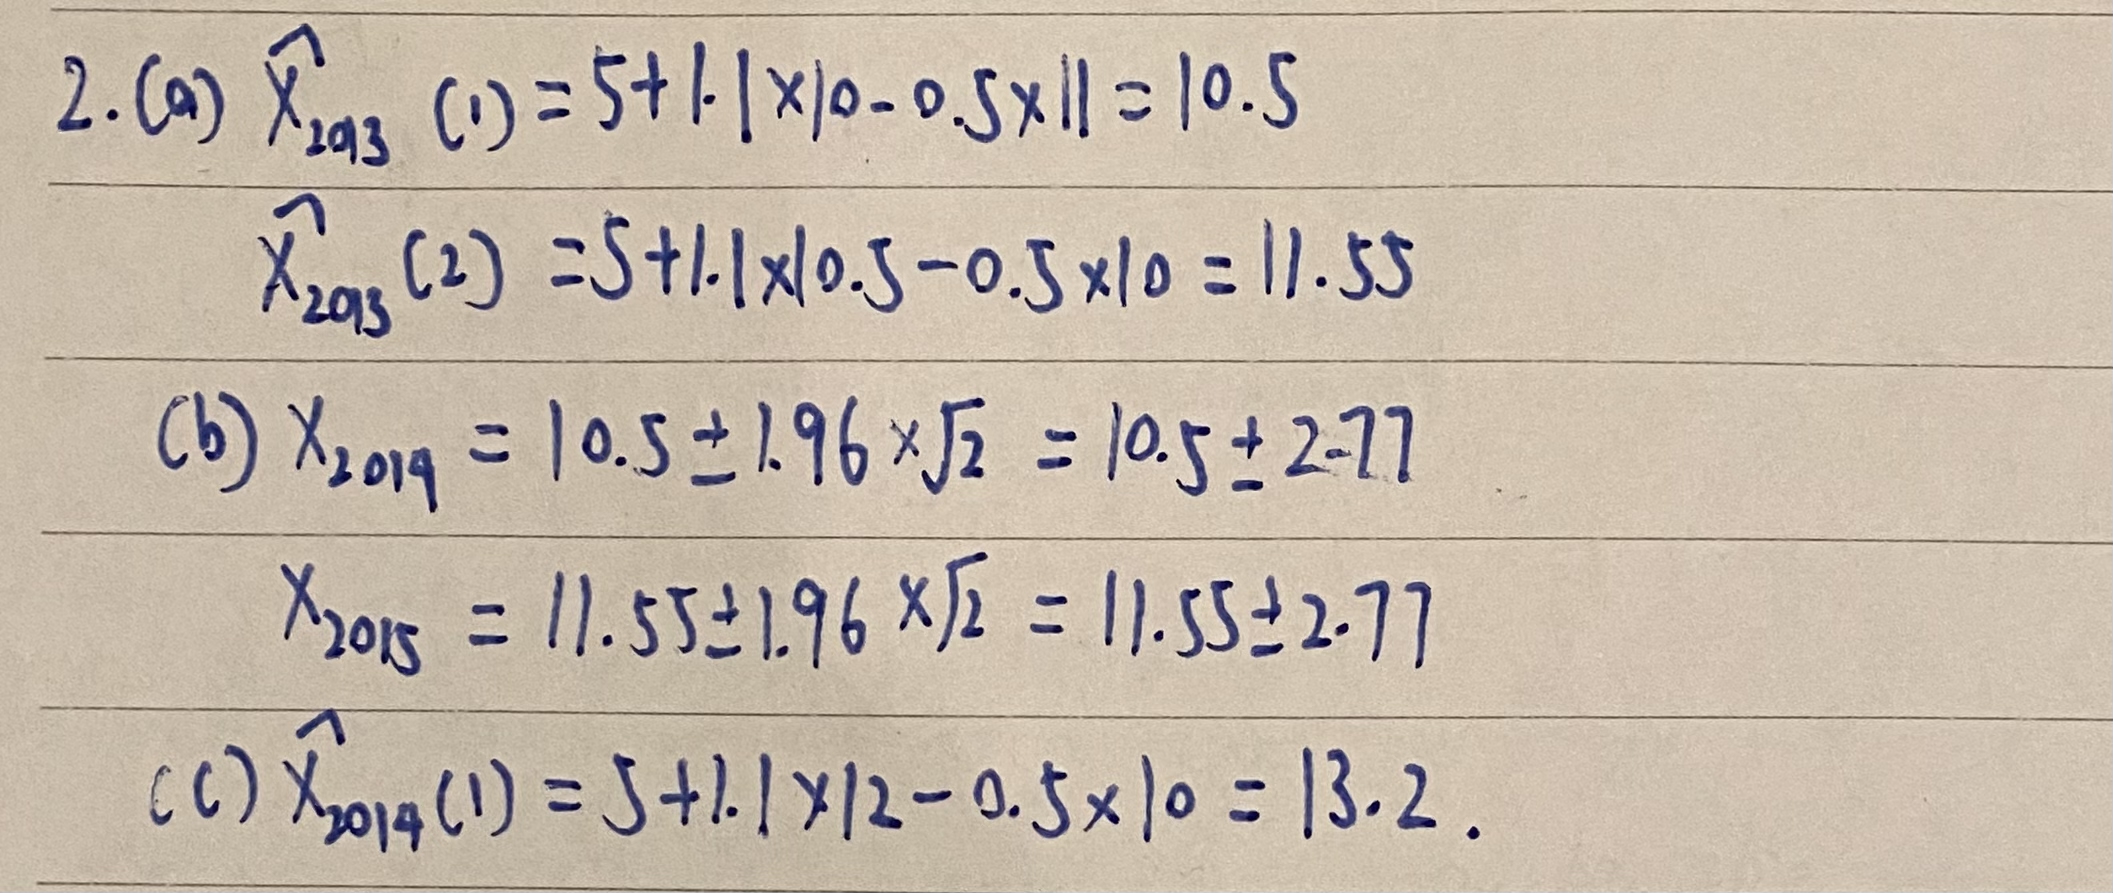 2.(a) X̂₂₀₁₃ (1) = 5+1.1×10-0.5×11 = 10.5
X̂₂₀₁₃ (2) = 5+1.1×10.5-0.5×10 = 11.55
(b) X₂₀₁₄ = 10.5 ± 1.96 ×√2 = 10.5 ± 2.77
X₂₀₁₅ = 11.55 ± 1.96 ×√2 = 11.55 ± 2.77
(c) X̂₂₀₁₄ (1) = 5+1.1×12-0.5×10 = 13.2.